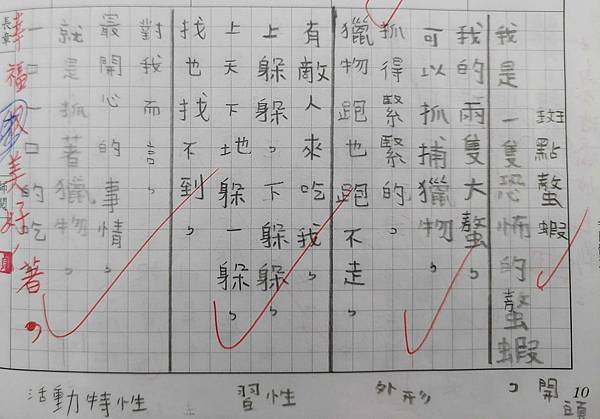 斑點螯蝦
我是一隻恐怖的螯蝦，
我的兩隻大螯，
可以抓捕獵物，
抓得緊緊的，
獵物跑也跑不走。
有敵人來吃我，
上躲躲，下躲躲，
上天下地躲一躲，
找也找不到。
對我而言，
最開心的事情，
就是抓著獵物，
一口一口的吃著，
幸福美好
10
開頭
外形
習性
活動特性